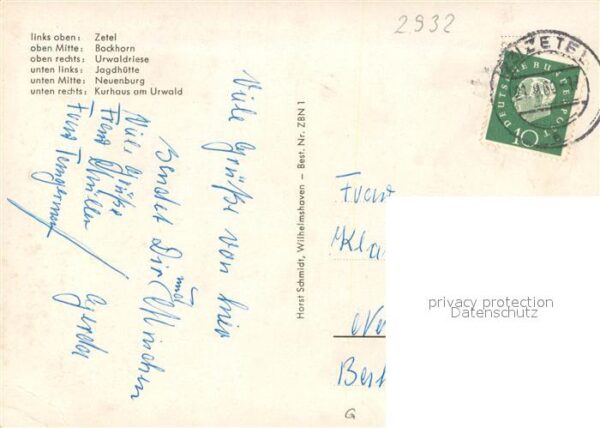 links oben: Zetel
oben Mitte: Bockhorn
oben rechts: Urwaldriese
unten links: Jagdhütte
unten Mitte: Neuenburg
unten rechts: Kurhaus am Urwald
2932
ZETEL
DEUTSCHE BUNDESPOST
10
Viele Grüße von hier
sendet Dir und
Gerda
Viele Grüße
Frau
Frau
Horst Schmidt, Wilhelmshaven – Best. Nr. ZBN 1
privacy protection
Datenschutz
G